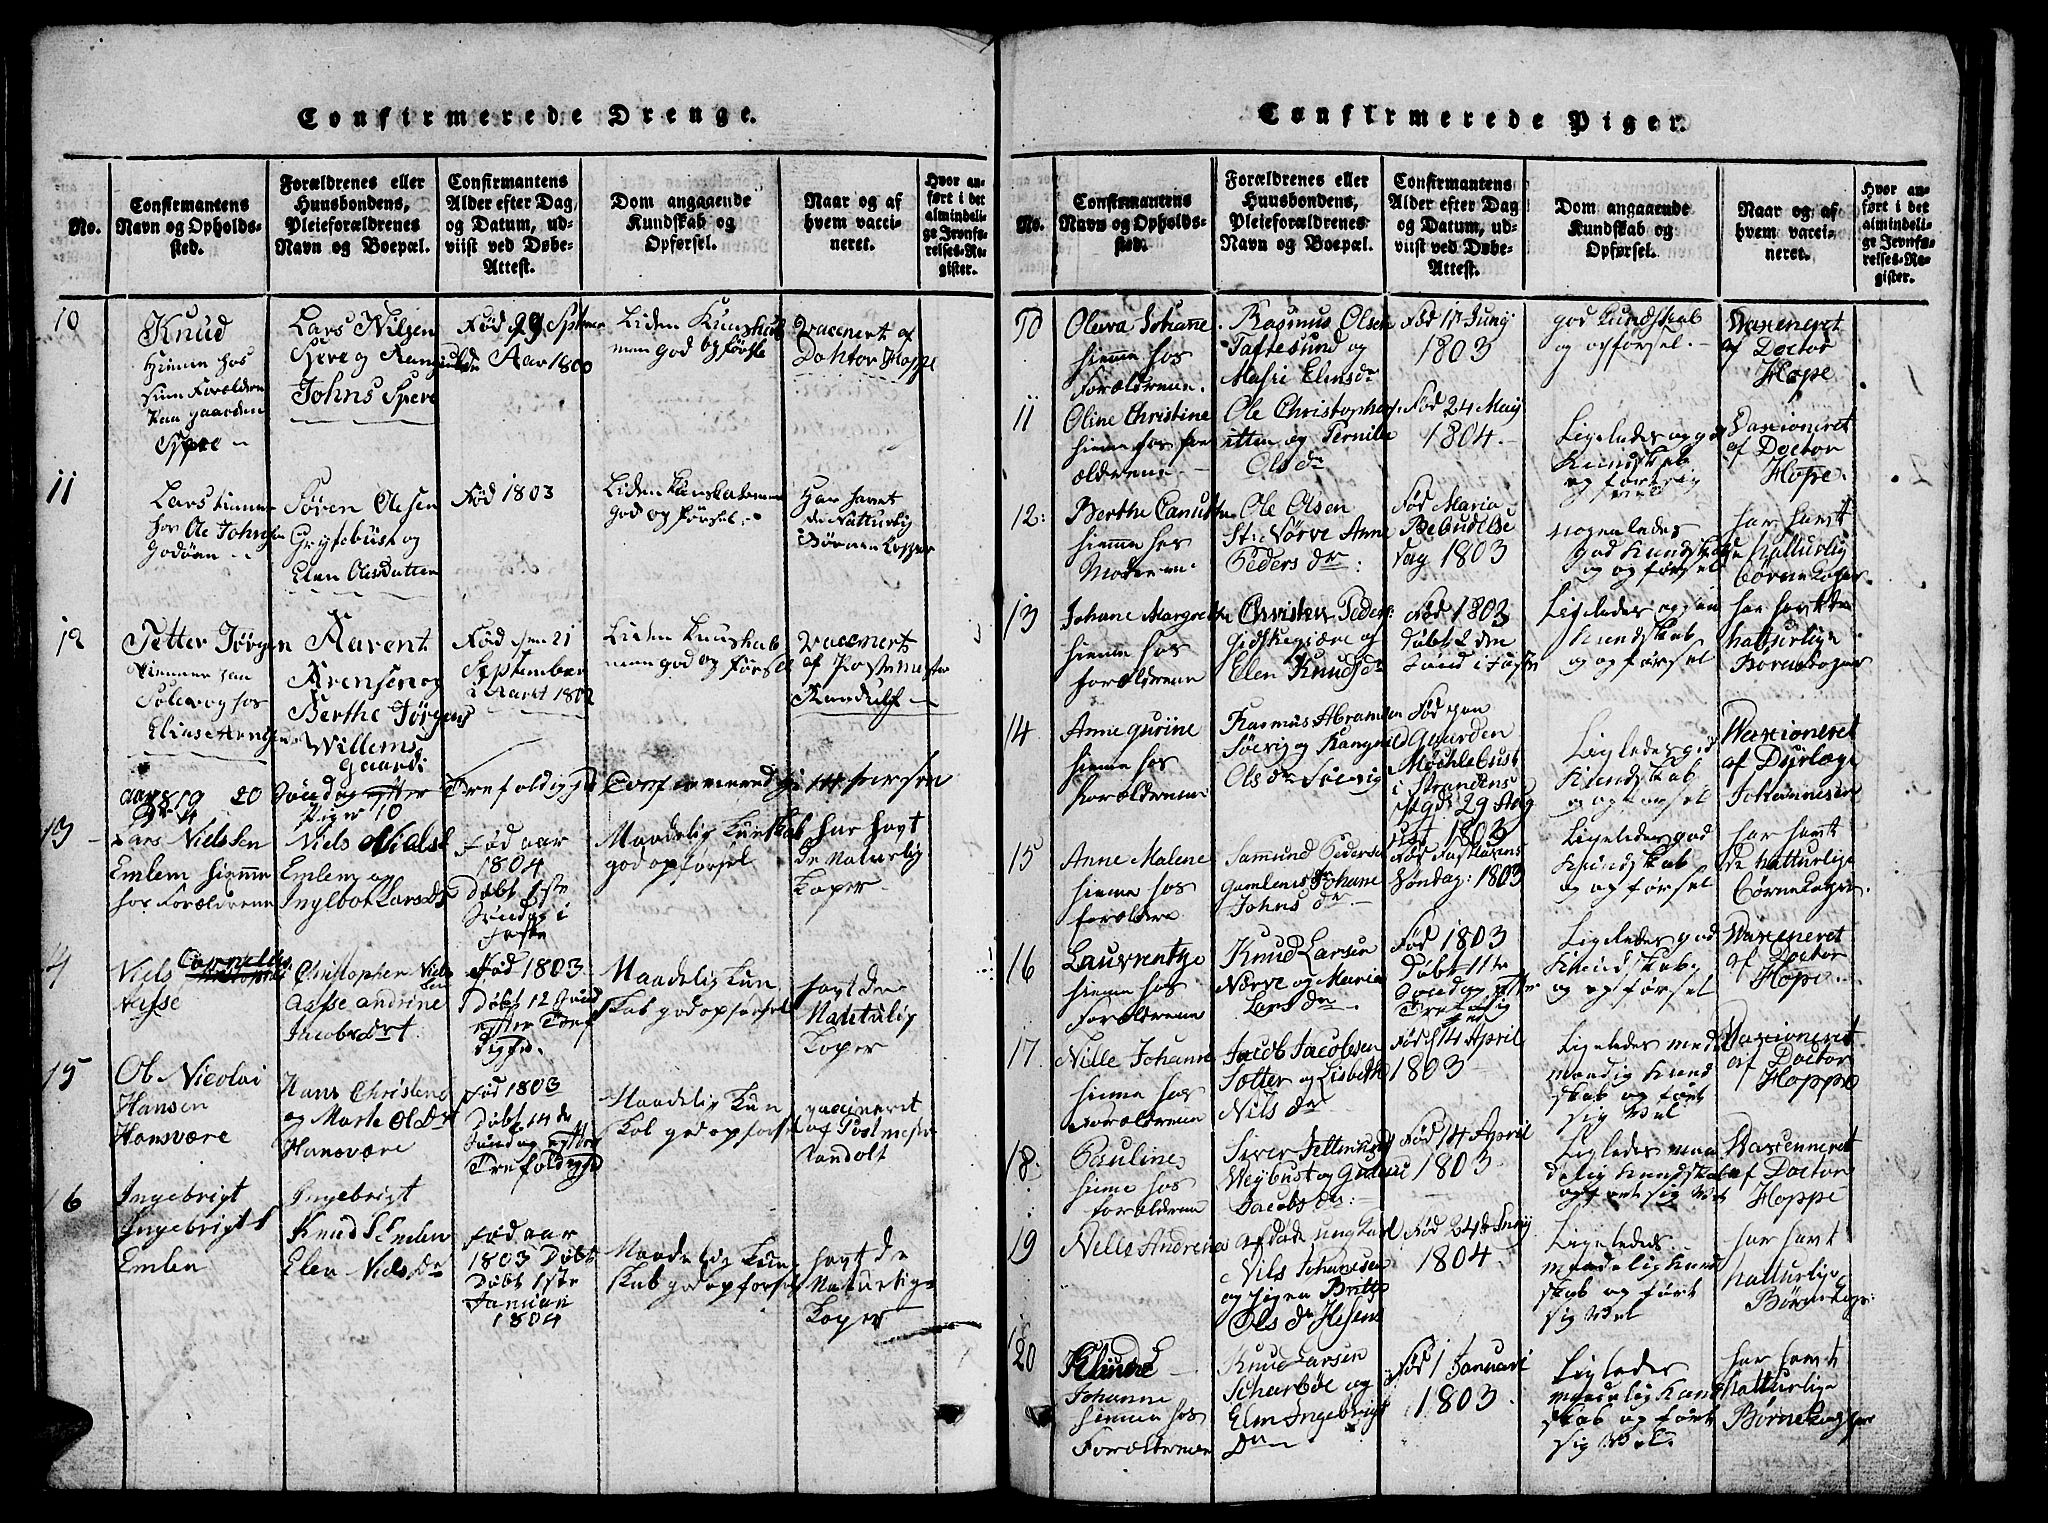 Confirmerede Drenge.
No.
Confirmantens
Navn og Opholds-
sted.
Forældrenes eller
Huusbondens,
Pleieforældrenes
Navn og Boepæl.
Confirmantens
Alder efter Dag
og Datum, ud-
viist ved Døbe-
Attest.
Dom angaaende
Kundskab og
Opførsel.
Naar og af
hvem vacci-
neret.
Hvor an-
ført i det
almindeli-
ge Jevnfø-
relses-Re-
gister.
10
Knud
Hiemme hos
sine Forældre
paa gaarden
Lars Nilsen
Spere og
Johns Spere
Fød 29 Sptmr
Aar 1800
Liden Kunskab
men god opførsle
vaccenert af
Doktor Hoppe
11
Lars hiemme
hos Ole Johnsen
Godøen
Søren Olesen
Grytebust og
Elen Olesdatter
Fød 1803
Liden Kunskab men
god opførsel
Har havt
de Natturlig
Børnen Kopper
12
Petter Jørgen
Hiemme paa
Solevog hos
Elias Arntsen
Aarent
Arensen og
Berthe Jørgens
Willems
gaard
Fød den 21
September
i Aaret 1802
Liden Kunskab
men god opførsel
vaccenert
af Postmester
Randulf
aar 1819 20 Søndag efter Trefoldighed Confirmered 14 persen
Dr 4 Piger 10
13
Lars Nielsen
Emlem hiemme
hos Forældrene
Niels Niels
Emlem og
Inglbor Lars Dt
Fød aar
1804
Døbt 1ste
Søndag i
Faste
Maadelig Kunskab
god opførsel
har havt
de Naturlig
Koper
14
Niels Cornelius
Aasse
Christopher Niels
sen
Aasse andrine
Jacobs Drt
Fød 1803
Døbt 12 Sønd
efter Tref
digh.
Maadelig Kun
skab god opførsel
havt den
Natturlig
Koper
15
Ol Nicolai
Hansen
Hansvære
Hans Christens
og Marte Ol Drt
Hansvære
Fød 1803
Døbt 14 de
Søndag efter
Trefoldighed
Maadelig Kun
skab god opførsel
vaccineret
af Postmester
Randolt
16
Ingebrigt
Ingebrigt S
Emlen
Ingebrigt
Knud S Emlen
Elen Niels Dr
Fød aar
1803 Døbt
Døbt 1ste
Januari
1804
Maadelig Kun
skab god opførsel
havt de
Naturlige
Koper
Confirmerede Piger.
No.
Confirmantens
Navn og Opholds-
sted.
Forældrenes eller
Huusbondens,
Pleieforældrenes
Navn og Boepæl.
Confirmantens
Alder efter Dag
og Datum, ud-
viist ved Døbe-
Attest.
Dom angaaende
Kundskab og
Opførsel.
Naar og af
hvem vacci-
neret.
Hvor an-
ført i det
almindeli-
ge Jevnfø-
relses-Re-
gister.
10
Oleva Johanne
hieme hos
Forældrenne.
Rasmus Olsen
Taftesund og
Masri Elensdr
Fød 11 Junÿ
1803
god Kundskab
og opførsel.
Waxeneret
af Doctor
Hope
11
Oline Christine
hieme hos for
ældrenne
Ole Christophers
og Pernille
Ols dr
Fød 24 Maij
1804.
Ligeledes og god
Kundskab
og ført sig
vel
Vaxioneret
af Doctor
Hope.
12:
Berthe Canutte
hiemme hos
Moderen
Ole Olsen
St. Nørve Anne
Peders dr:
Fød Maria
Bebudelse
dag 1803
nogenledes
god Kundskab
og opførsel
har havt
de natturlig
Børne Koper.
13
Johane Margrethe
hieme hos
forældrene
Christen Peders:
Gidskegiære og
Elen Knudsdr
Fød 1803
Døbt 2 den
Sønd i Fasten
Ligeledes og
Kundskab
og opførsel
har havt de
natturlige
Børnekoper
14
Anne guriine
hieme hos
forældrenne
Rasmus Abramsen
Søevig og
Ols dr Søevig
Fød paa
Gaarden
Møchlebust
i Strandens
Pstgd: 29 Aug
ust 1803
Ligledes god
Kundskab
og opførsel
Waxioneret
af Dyrlæge
Johannesen
15
Anne Malene
hieme hos
forældrene
Sammund Peders
Gamlem Johane
Johns dr
Fød Fastlavens
Søndag: 1803
Ligeledes god
Kundskab
og opførsel
har havt
de natturlige
Børne Koper.
16
Laurentze
hieme hos
forældrenne
Knud Larsen
Nørve og Maria
Lars dr
Fød 1803
Døbt 11te
Søndag efter
Trefoldig
hed
Ligeledes god
Kundskab.
og opførsel
Waxeneret
af Doctor
Hope
17.
Nille Johanne
hieme hos
forældrenne
Jacob Jacobsen
Sotter og Lisbeth
Nils dr
Fød 14 April
1803
Ligeledes med
maadig Kund
skab og ført
sig vel
Vaxioneret
af Doctor
Hoppe
18.
Pauline
hieme hos
forældrenne
Siver Pettersen
Weybust og
Jacobs dr:
Fød 14 April
1803
Ligledes maa
delig Kundskab
og ført sig vel
Waxenneret
af Doctor
Hoppe
19
Nille Andrena
afdøde ungkarl
Nils Johansen
og pigen Britte
Ols dr Hesen
Fød 24 de Junij
1804
Ligeledes
maadelig Kund
skab og ført
sig vel
har havt
natturlige
Børne Kop:
20
Johanne
hieme hos
Forældrenne
Knud Larsen
Scharbøe og
Elen Ingebrigt
Dr
Fød 1 Januari
1803.
Ligledes
maadelig Kund
skab og ført
sig vel.
har havt
natturlige
Børne Kopper